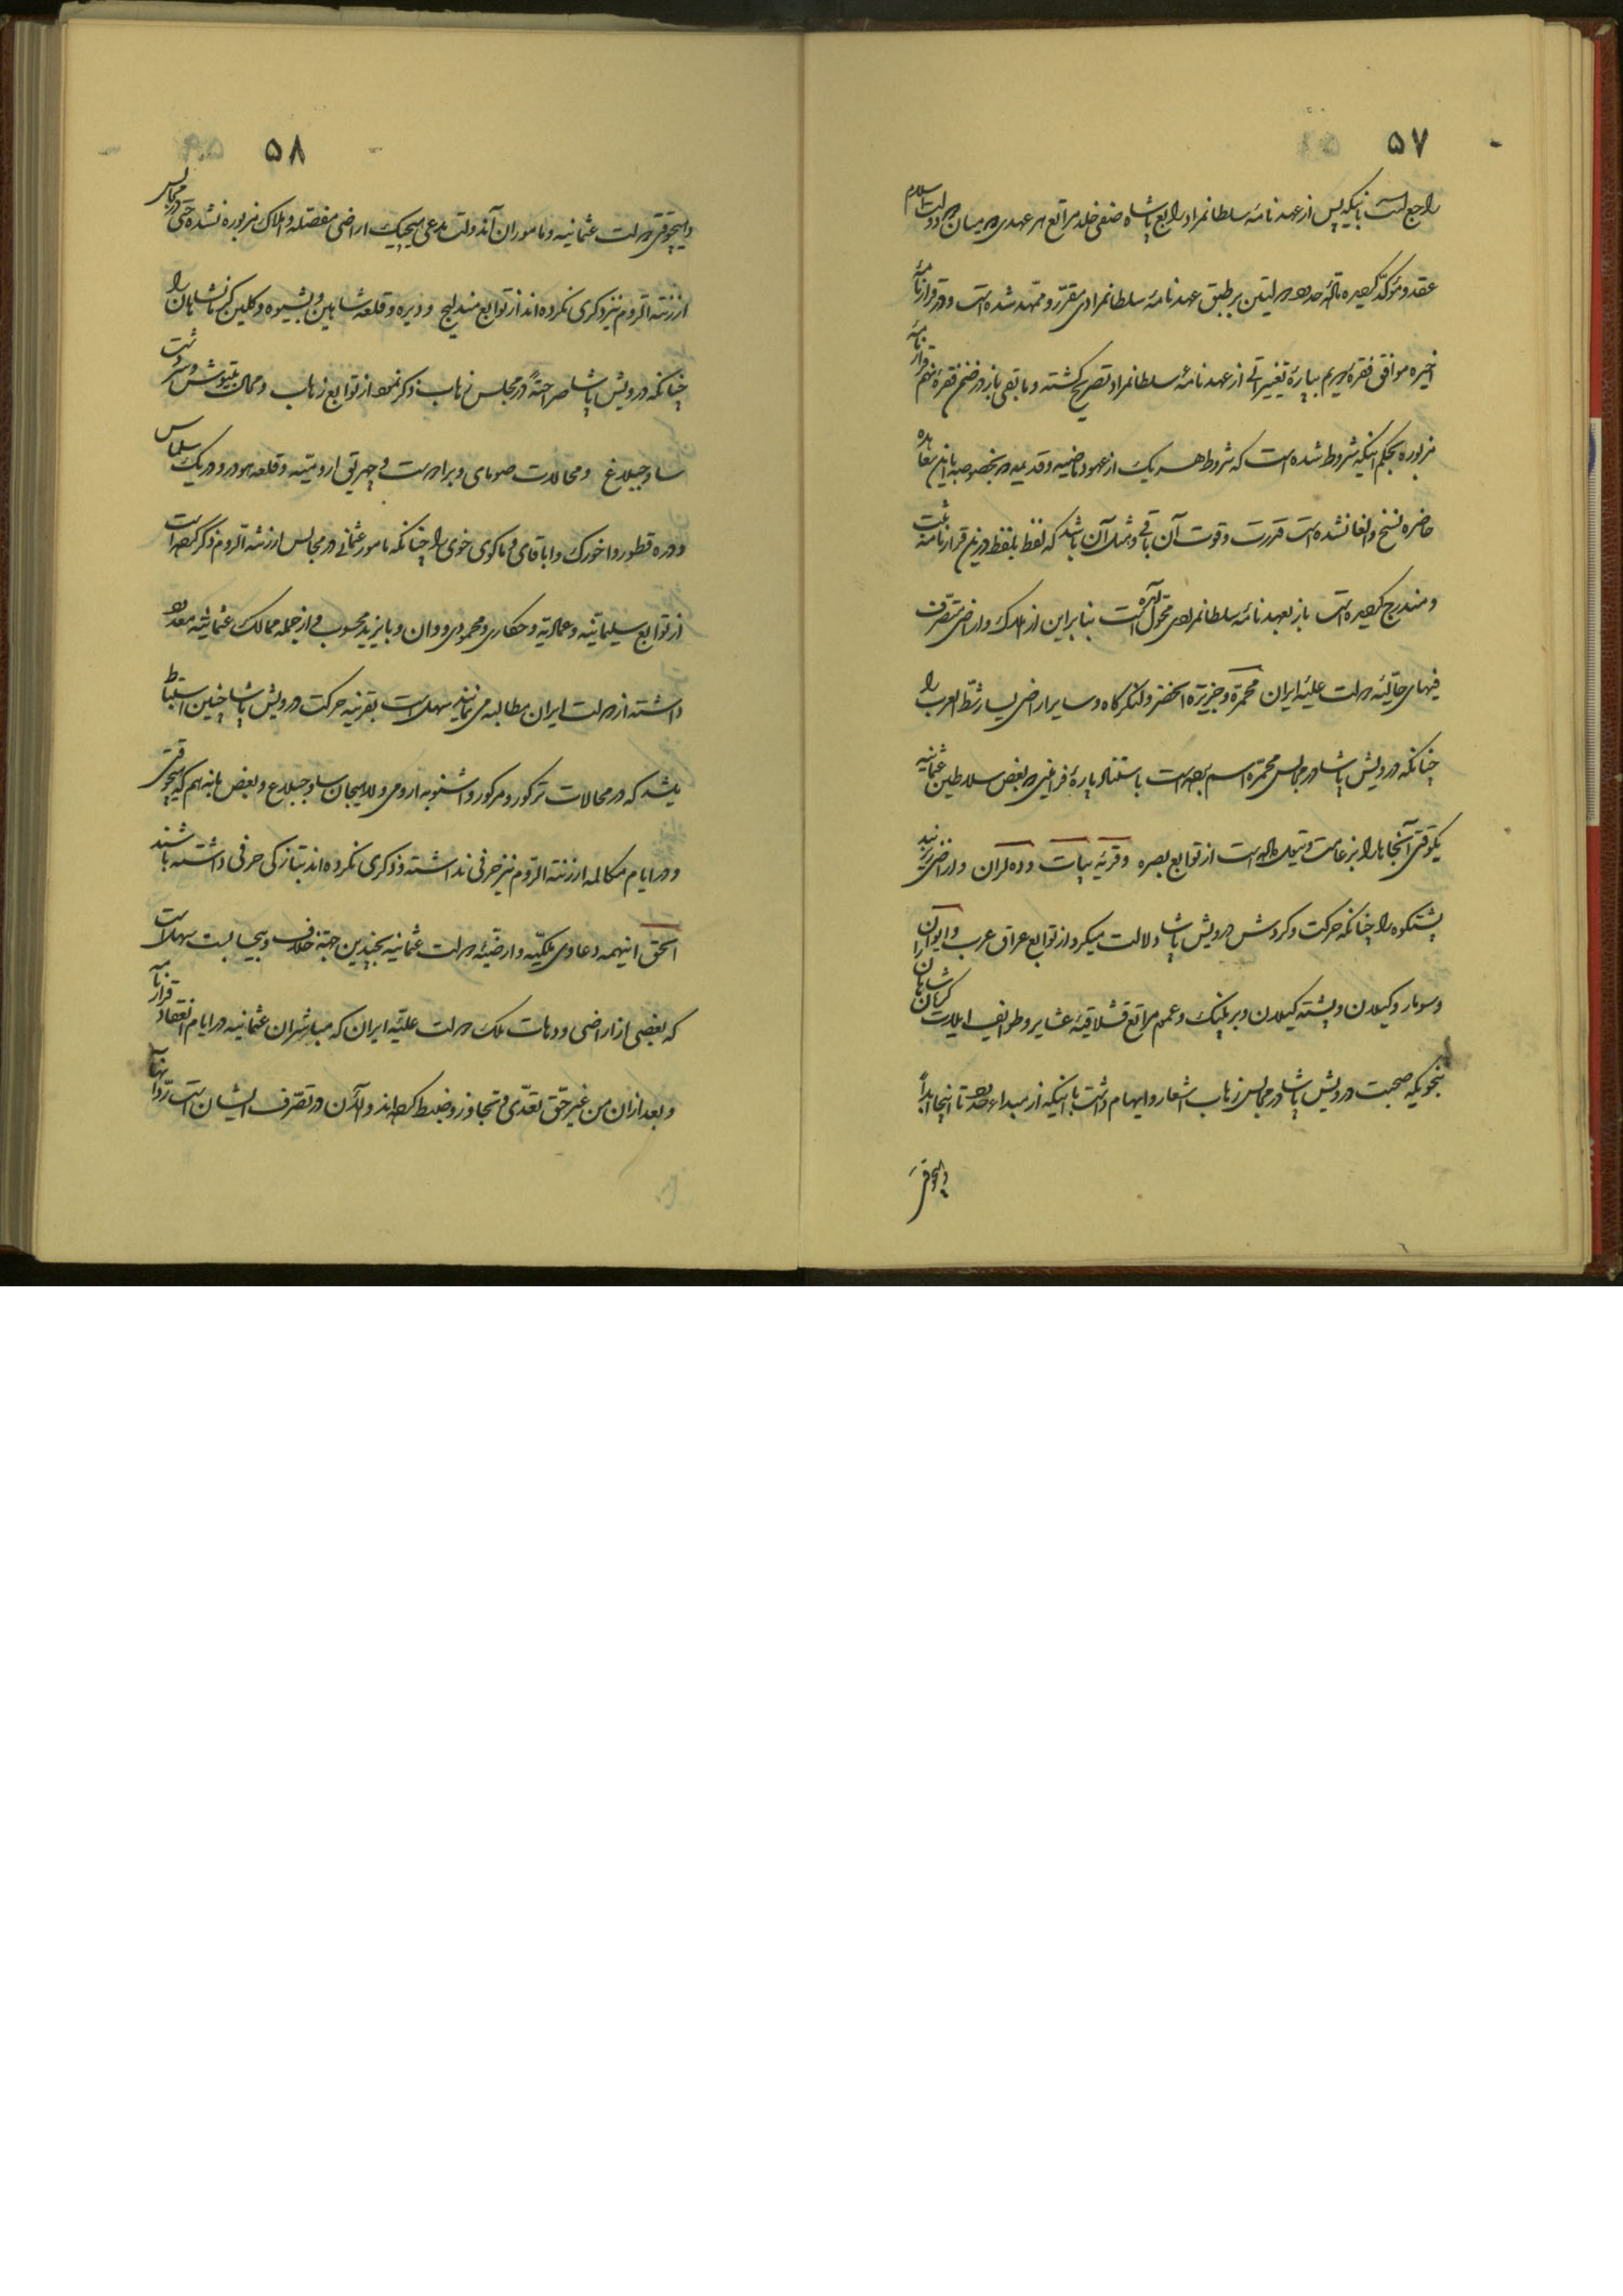 ۵۷
راجع است با اینکه پس از عهدنامه سلطانمراد رابع با شاه صفی خلد مراتع هر عهدی در میان دو دولت اسلام
عقد و مؤکد گردیده تماماً حدود دولتین بر طبق عهدنامه سلطانمرادی مقرّر و ممهّد شده است و در قرارنامهٔ
اخیره موافق فقرهٔ دویم بپارهٔ تغییراتی از عهدنامهٔ سلطانمراد تصریح گشته و مابقی باز در ضمن فقرهٔ نهم قرارنامهٔ
مزبوره بحکم اینکه مشروط شده است که شروط هر یک از عهود ماضیه و قدیمه در بخصوصه باین معاهده
حاضره نسخ و الغا نشده است قدرت و قوت آن باقی و مثل آن باشد که لفظ بلفظ درین قرارنامه ثبت
و مندرج گردیده است باز بعهدنامهٔ سلطانمرادی محوّل آمده است بنابراین از املاک و اراضی متصرّف
فیهای حالیهٔ دولت علیّهٔ ایران محمّره و جزیرة الخضر و لنگرگاه و سایر اراضی یسار شطّ العرب را
چنانکه درویش پاشا در مجالس محمّره اسم برده است باستناد پارهٔ فرامین بعض سلاطین عثمانیه
یکوقتی آنجاها را بزعامت و تیول داده است از توابع بصره و قریهٔ بیات و ده لران و اراضی
پشتکوه را چنانکه حرکت و کردش درویش پاشا دلالت میکرد از توابع عراق عرب و ایوان را
و سومار و کیلان و پشته کیلان و بریلینک و عموم مراتع قشلاقیهٔ عشایر و طوایف ایلات کرمانشاهان
بنحویکه صحبت درویش پاشا در مجالس زهاب اشعار و ایهام داشت با اینکه از مبداء حدود تا اینجا ابداً
و هیچوقتی
۵۸
و هیچوقتی دولت عثمانیه و ماموران آندولت مدعی هیچیک اراضی مفصّله و املاک مزبوره نشده حتی در مجالس
ارزنة الروم نیز ذکری نکرده‌اند از توابع مندلیج و دیره و قلعه شاهین و بشیوه و کلین کرمانشاهان را
چنانکه درویش پاشا صراحةً در مجلس زهاب ذکر نمود از توابع زهاب و محال بتوش و سردشت
ساوجبلاغ و محالات صومای و برادوست و چهریق ارومیّه و قلعه هودر و دریک سلماس
و دره قطور و اخورک و اباقای و ماکوی خوی را چنانکه مامور عثمانی در مجالس ارزنة الروم ذکر کرده است
از توابع سلیمانیّه و عمادیّه و حکاری و محمودی و وان و بایزید محسوب و از جمله ممالک عثمانیّه معدود
داشته از دولت ایران مطالبه می‌نمایند سهل است بقرینه حرکت درویش پاشا چنین استنباط
میشد که در محالات ترکور و مرکور و اشنویه ارومی و لاهیجان ساوجبلاغ و بعض مابه هم که هیچوقتی
و در ایام مکالمه ارزنة الرّوم نیز حرفی نداشته و ذکری نکرده‌اند بتازکی حرفی داشته باشند
الحق اینهمه دعاوی ملکیّه و ارضیّهٔ دولت عثمانیه بچندین جهة خلاف و بیجاست سهل است
که بعضی از اراضی و دهات ملک دولت علیّه ایران که مباشران عثمانیه در ایام انعقاد قرارنامه
و بعد از آن من غیر حقّ تعدّی و تجاوز و ضبط کرده‌اند و الآن در تصرّف ایشان است ردّ آنها